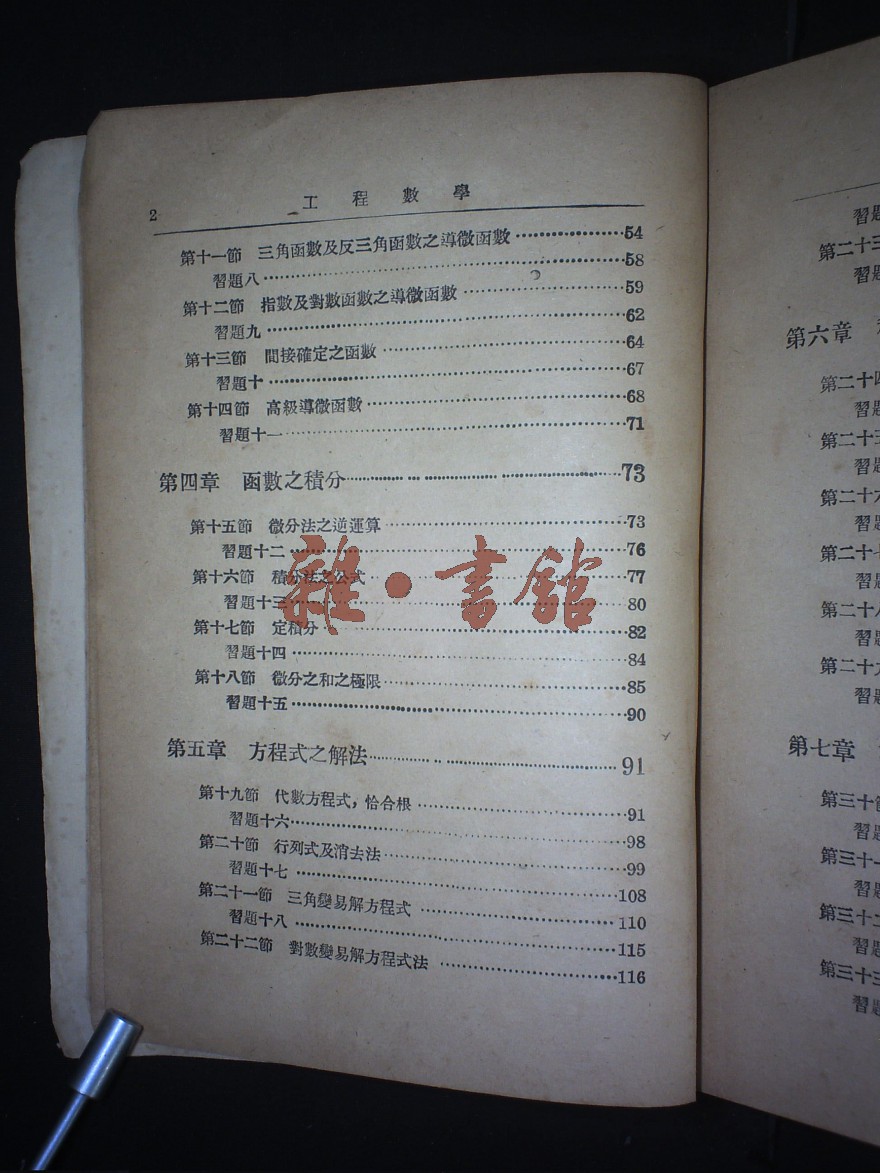 2 工程數學
第十一節 三角函數及反三角函數之導微函數 54
習題八 58
第十二節 指數及對數函數之導微函數 59
習題九 62
第十三節 間接確定之函數 64
習題十 67
第十四節 高級導微函數 68
習題十一 71
第四章 函數之積分 73
第十五節 微分法之逆運算 73
習題十二 76
第十六節 積分法之公式 77
習題十三 80
第十七節 定積分 82
習題十四 84
第十八節 微分之和之極限 85
習題十五 90
第五章 方程式之解法 91
第十九節 代數方程式,恰合根 91
習題十六 98
第二十節 行列式及消去法 99
習題十七 108
第二十一節 三角變易解方程式 110
習題十八 115
第二十二節 對數變易解方程式法 116
雜·書館
習
第二十三
習
第六章
第二十四
習
第二十五
習
第二十六
習
第二十七
習
第二十八
習
第二十九
習
第七章
第三十節
習
第三十一
習
第三十二
習
第三十三
習